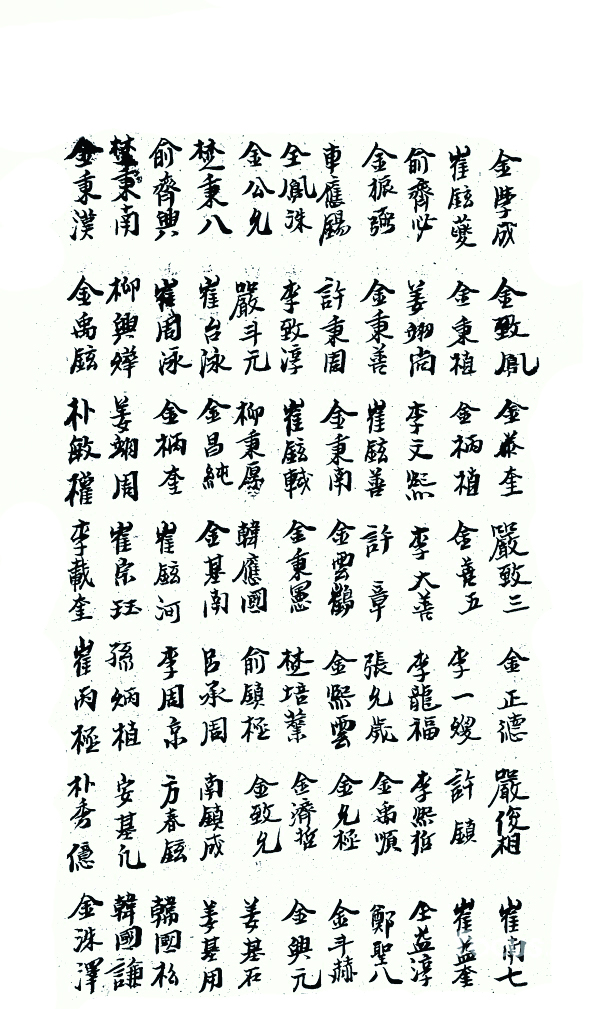 金學成 金致鳳 金泰奎 嚴致三 金正德 嚴俊相 崔南七
崔鉉夔 金秉植 金柄植 金喜五 李一燮 許鎭 崔益奎
俞齊必 姜翊尚 李文熙 李大善 李龍福 李熙哲 全益淳
金振弼 金秉善 崔鉉善 許章 張允 金禹順 鄭聖八
車應暘 許秉周 金秉南 金雲鶴 金熙雲 金允極 金斗赫
全鳳洙 李致淳 崔鉉軾 金秉憲 楚培業 金濟哲 金興元
金公允 嚴斗元 柳秉厚 韓應國 俞鎭極 金致允 姜基石
楚秉八 崔台泳 金昌純 金基南 呂承周 南鎭成 姜基用
俞齊興 崔周泳 金柄奎 崔鉉河 李周京 方春鉉 韓國松
楚秉南 柳興燁 姜翊周 崔宗珏 孫炳植 安基凡 韓國謙
金秉漢 金禹鉉 朴敏權 李載奎 崔丙極 朴秀億 金洙澤